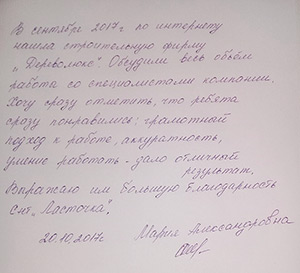 В сентябре 2017г по интернету
нашла строительную фирму
„Дереволюкс". Обсудили весь объём
работа со специалистами компании.
Хочу сразу отметить, что ребята
сразу понравились: грамотный
подход к работе, аккуратность,
умение работать - дало отличный
результат.
Выражаю им большую благодарность
снт „Ласточка".
20.10.2017г. Мария Александровна